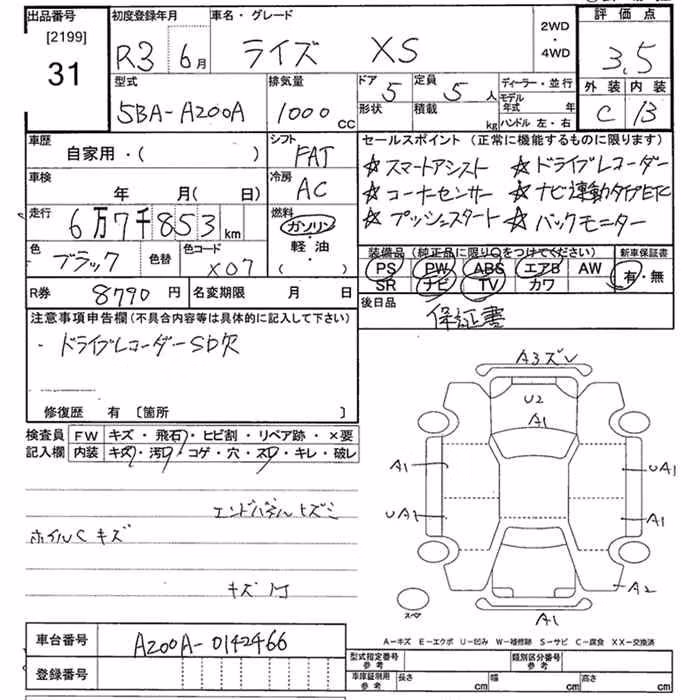 出品番号 初度登録年月 車名・グレード 2WD・4WD 評価点
[2199]
31 R3 6月 ライズ XS 3.5
型式 排気量 ドア 5 定員 5人 ディーラー・並行 外装 内装
5BA-A200A 1000cc 形状 積載 kg モデル年式 年 C B
ハンドル 左・右
車歴 シフト セールスポイント (正常に機能するものに限ります)
自家用・( ) FAT
☆スマートアシスト ☆ドライブレコーダー
車検 冷房 ☆コーナーセンサー ☆ナビ連動タイプETC
年 月( 日) AC ☆プッシュスタート ☆バックモニター
走行 6万7千853km 燃料 ガソリン・軽油・( )
色 ブラック 色替 色コード X07
装備品 (純正品に限り○をつけてください) 新車保証書
PS PW ABS エアB AW 有・無
SR ナビ TV カワ
R券 8790円 名変期限 月 日 後日品
保証書
注意事項申告欄(不具合内容等は具体的に記入して下さい)
・ドライブレコーダーSD欠
修復歴 有 〔箇所 〕
検査員 FW キズ・飛石・ヒビ割・リペア跡・×要
記入欄 内装 キズ・汚レ・コゲ・穴・スレ・キレ・破レ
エンドパネルヒズミ
ホイルCキズ
A3ズレ
U2
A1
A1 UA1
UA1 A1
A2
スペア A1
A−キズ E−エクボ U−凹み W−補修跡 S−サビ C−腐食 XX−交換済
車台番号 A200A-0142466
登録番号
型式指定番号 参考 類別区分番号 参考
車庫証明用 参考 長さ cm 幅 cm 高さ cm